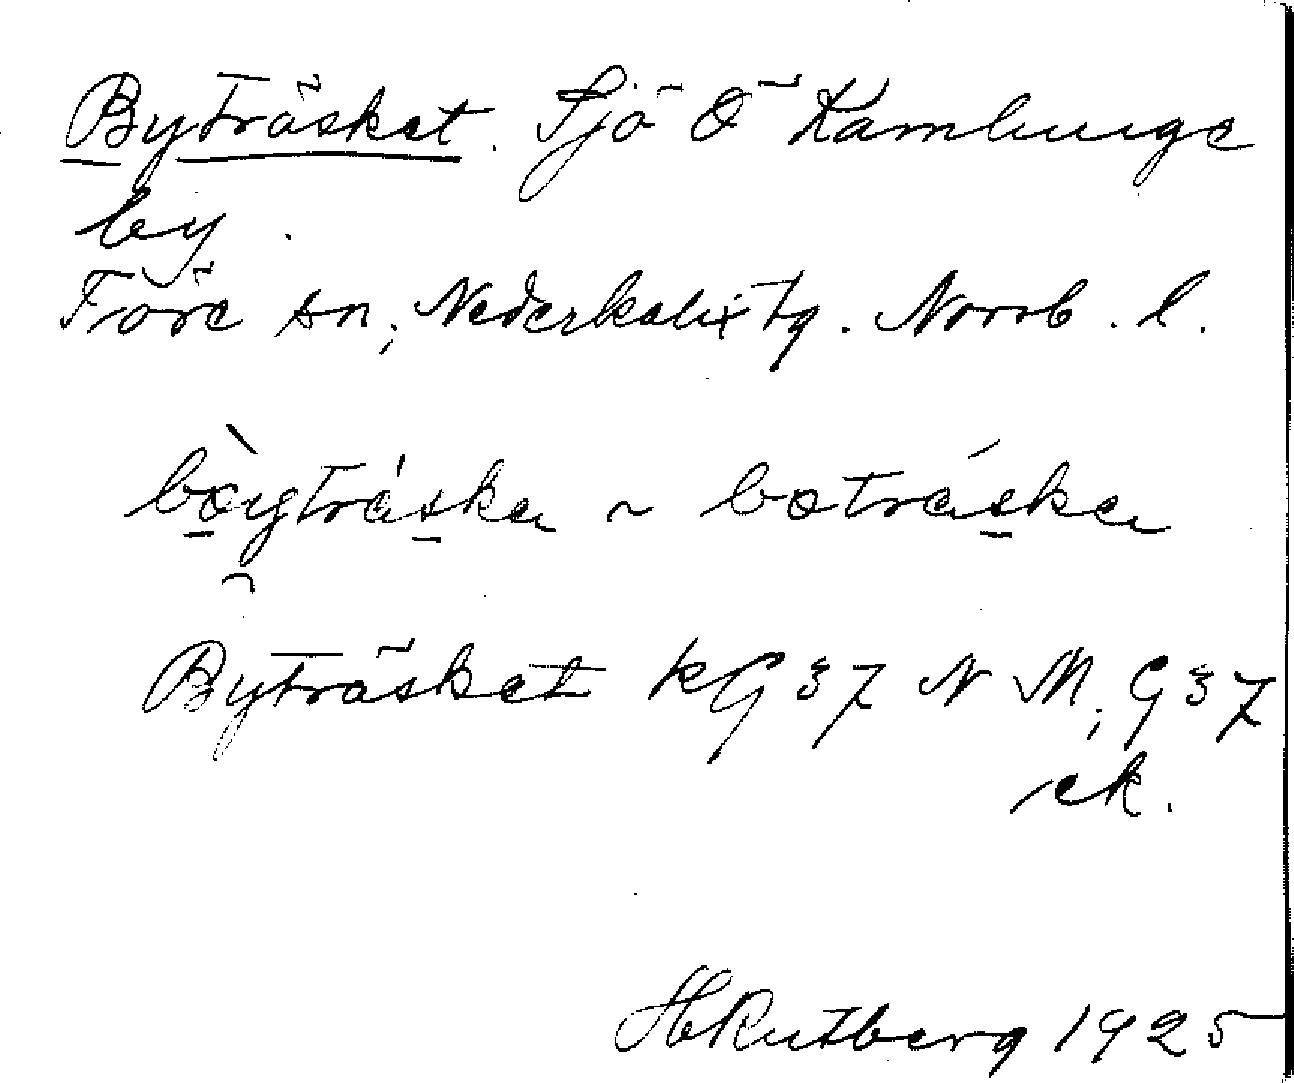 Byträsket. Sjö Ö Kamlunge
by.
Töre sn, Nederkalix tg. Norrb. l.
bò̱yträ́s̱ka ~ botrás̱ka
Byträsket kG37 N M, G37
ek.
HRutberg 1925